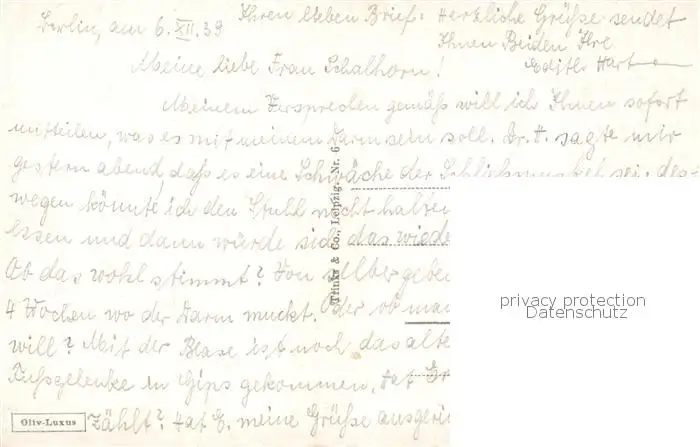 Ihren lieben Brief. Herzliche Grüße sendet
Berlin, am 6. XII. 39
Ihnen Beiden Ihre
Edith Hart
Meine liebe Frau Schalhorn!
Meinem Versprechen gemäß will ich Ihnen sofort
mitteilen, was es mit meinem Darm sein soll. Dr. H. sagte mir
gestern abend, daß es eine Schwäche der Schließmuskeln sei, des-
wegen könnte ich den Stuhl nicht halten
essen und dann würde sich das wiede
Ob das wohl stimmt? Von selber geben
4 Wochen wo der Darm muckt. Oder ob man
will? Mit der Blase ist noch das alte
Fußgelenke in Gips gekommen, hat
zählt? Hat E. meine Grüße ausgeri
Trinks & Co., Leipzig. Nr. 6
Oliv-Luxus
privacy protection
Datenschutz